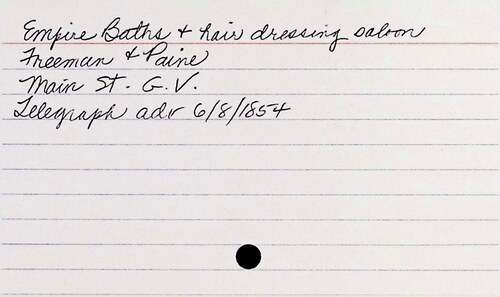 Empire Baths & hair dressing saloon
Freeman & Paine
Main St. G.V.
Telegraph adv 6/8/1854